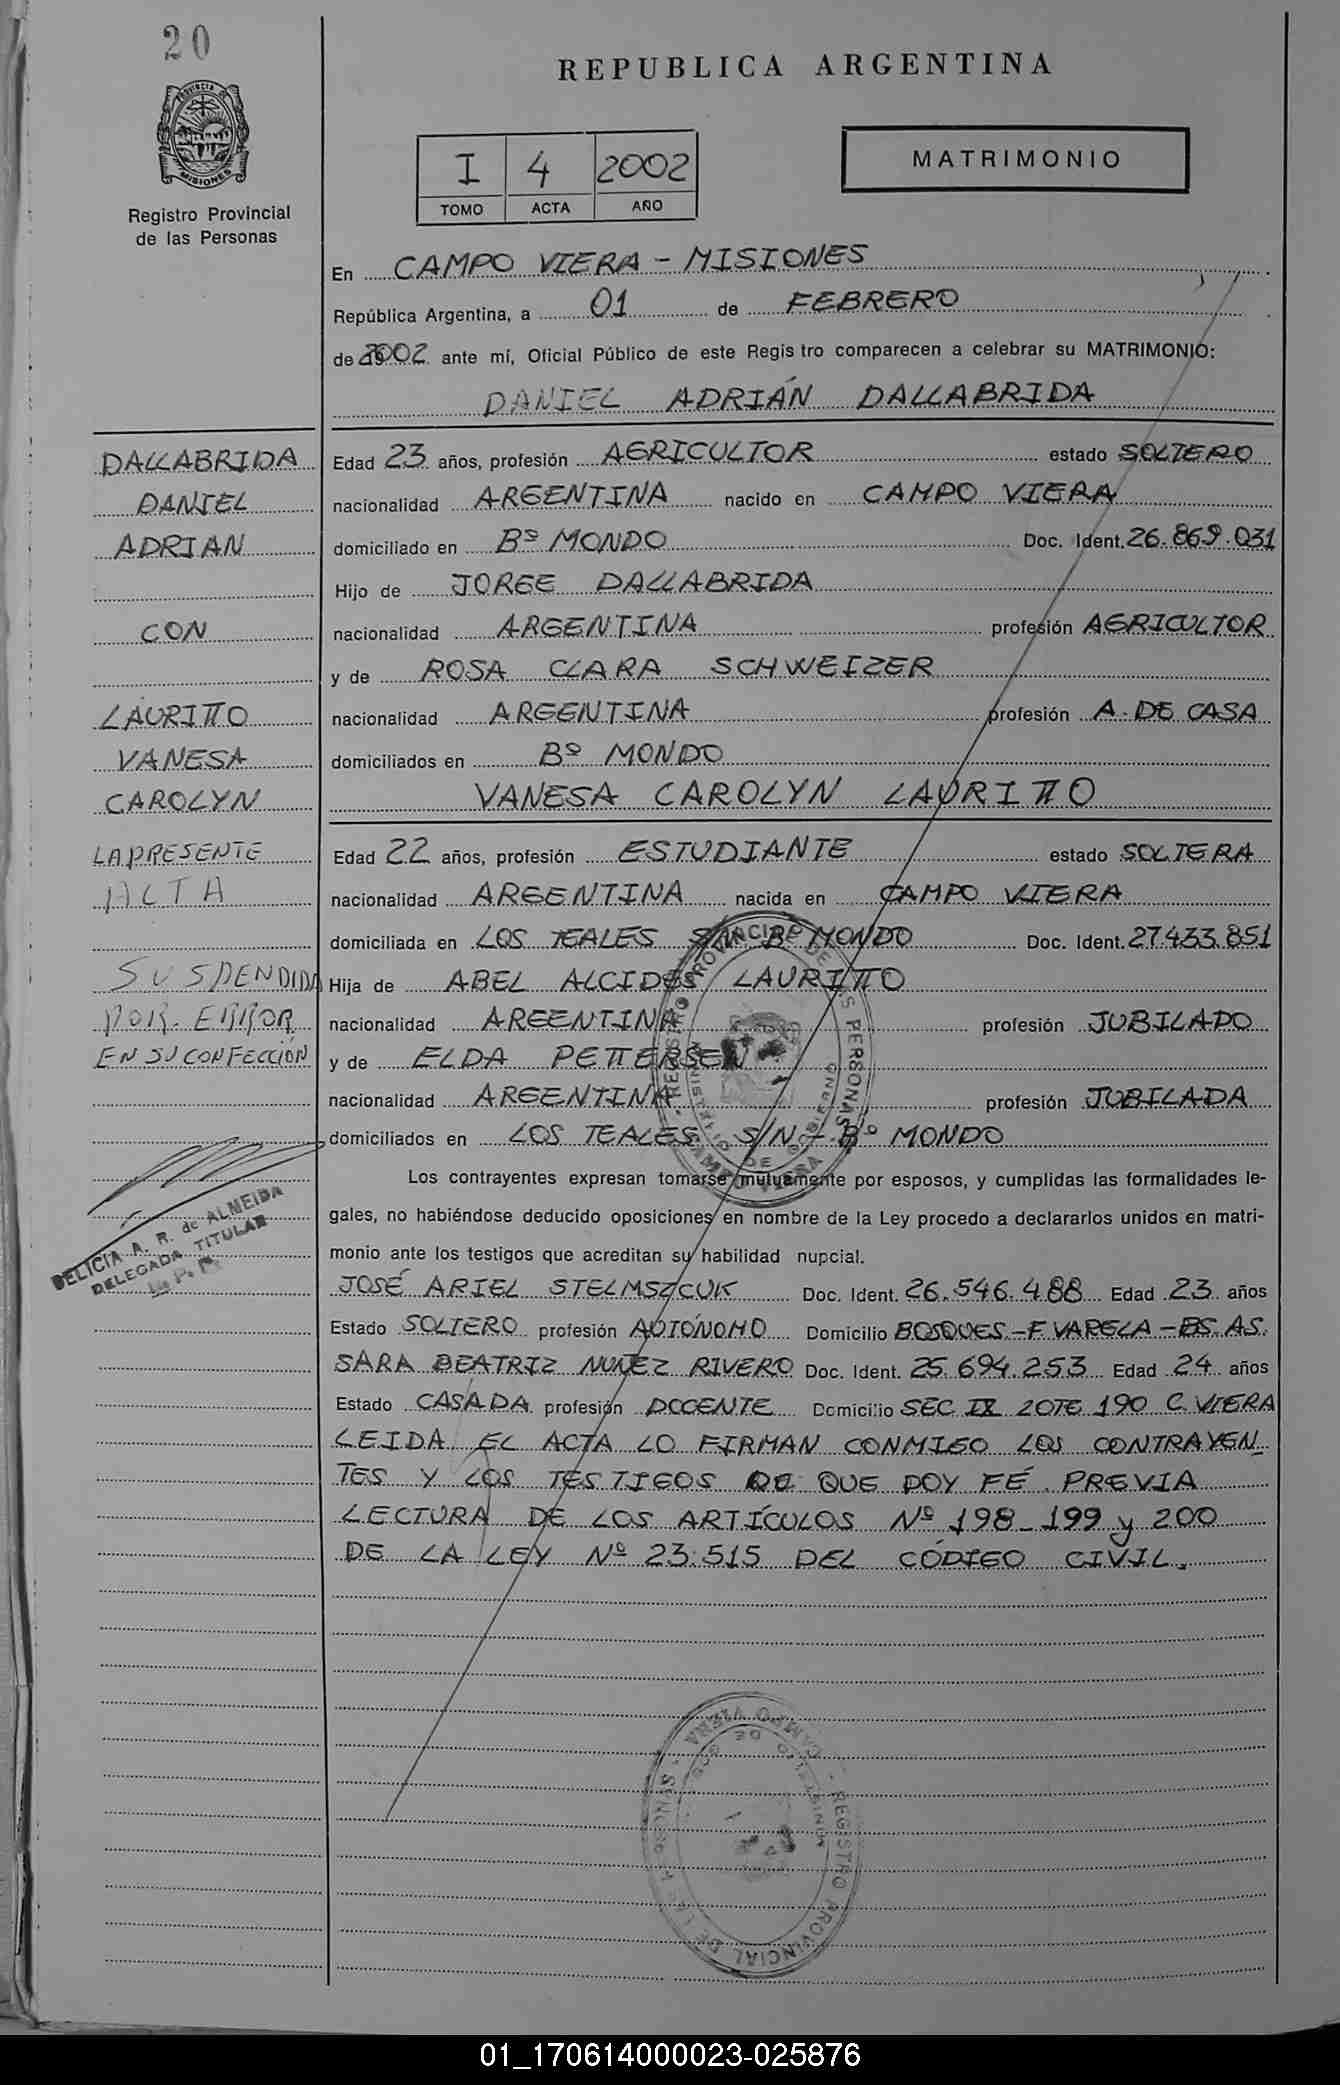 20
REPUBLICA ARGENTINA
PROVINCIA DE
MISIONES
Registro Provincial
de las Personas
I 4 2002
TOMO ACTA AÑO
MATRIMONIO
En CAMPO VIERA - MISIONES
República Argentina, a 01 de FEBRERO
de 2002 ante mí, Oficial Público de este Registro comparecen a celebrar su MATRIMONIO:
DANIEL ADRIÁN DALLABRIDA
DALLABRIDA
DANIEL
ADRIAN
CON
LAURITTO
VANESA
CAROLYN
LA PRESENTE
ACTA
SUSPENDIDA
POR ERROR
EN SU CONFECCIÓN
DELICIA A. R. de ALMEIDA
DELEGADA TITULAR
Edad 23 años, profesión AGRICULTOR estado SOLTERO
nacionalidad ARGENTINA nacido en CAMPO VIERA
domiciliado en Bº MONDO Doc. Ident. 26.869.031
Hijo de JORGE DALLABRIDA
nacionalidad ARGENTINA profesión AGRICULTOR
y de ROSA CLARA SCHWEIZER
nacionalidad ARGENTINA profesión A. DE CASA
domiciliados en Bº MONDO
VANESA CAROLYN LAURITTO
Edad 22 años, profesión ESTUDIANTE estado SOLTERA
nacionalidad ARGENTINA nacida en CAMPO VIERA
domiciliada en LOS TEALES S/N Bº MONDO Doc. Ident. 27433.851
Hija de ABEL ALCIDES LAURITTO
nacionalidad ARGENTINA profesión JUBILADO
y de ELDA PETTERSEN
nacionalidad ARGENTINA profesión JUBILADA
domiciliados en LOS TEALES S/N - Bº MONDO
Los contrayentes expresan tomarse mutuamente por esposos, y cumplidas las formalidades le-
gales, no habiéndose deducido oposiciones en nombre de la Ley procedo a declararlos unidos en matri-
monio ante los testigos que acreditan su habilidad nupcial.
JOSÉ ARIEL STELMSZCUK Doc. Ident. 26.546.488 Edad 23 años
Estado SOLTERO profesión AUTÓNOMO Domicilio BOSQUES - F. VARELA - BS. AS.
SARA BEATRIZ NUÑEZ RIVERO Doc. Ident. 25.694.253 Edad 24 años
Estado CASADA profesión DOCENTE Domicilio SEC IX LOTE 190 C. VIERA
LEIDA EL ACTA LO FIRMAN CONMIGO LOS CONTRAYEN
TES Y LOS TESTIGOS DE QUE DOY FÉ. PREVIA
LECTURA DE LOS ARTÍCULOS Nº 198 - 199 y 200
DE LA LEY Nº 23.515 DEL CÓDIGO CIVIL.
REGISTRO PROVINCIAL DE LAS PERSONAS
CAMPO VIERA
REGISTRO PROVINCIAL DE LAS PERSONAS
CAMPO VIERA
01_170614000023-025876